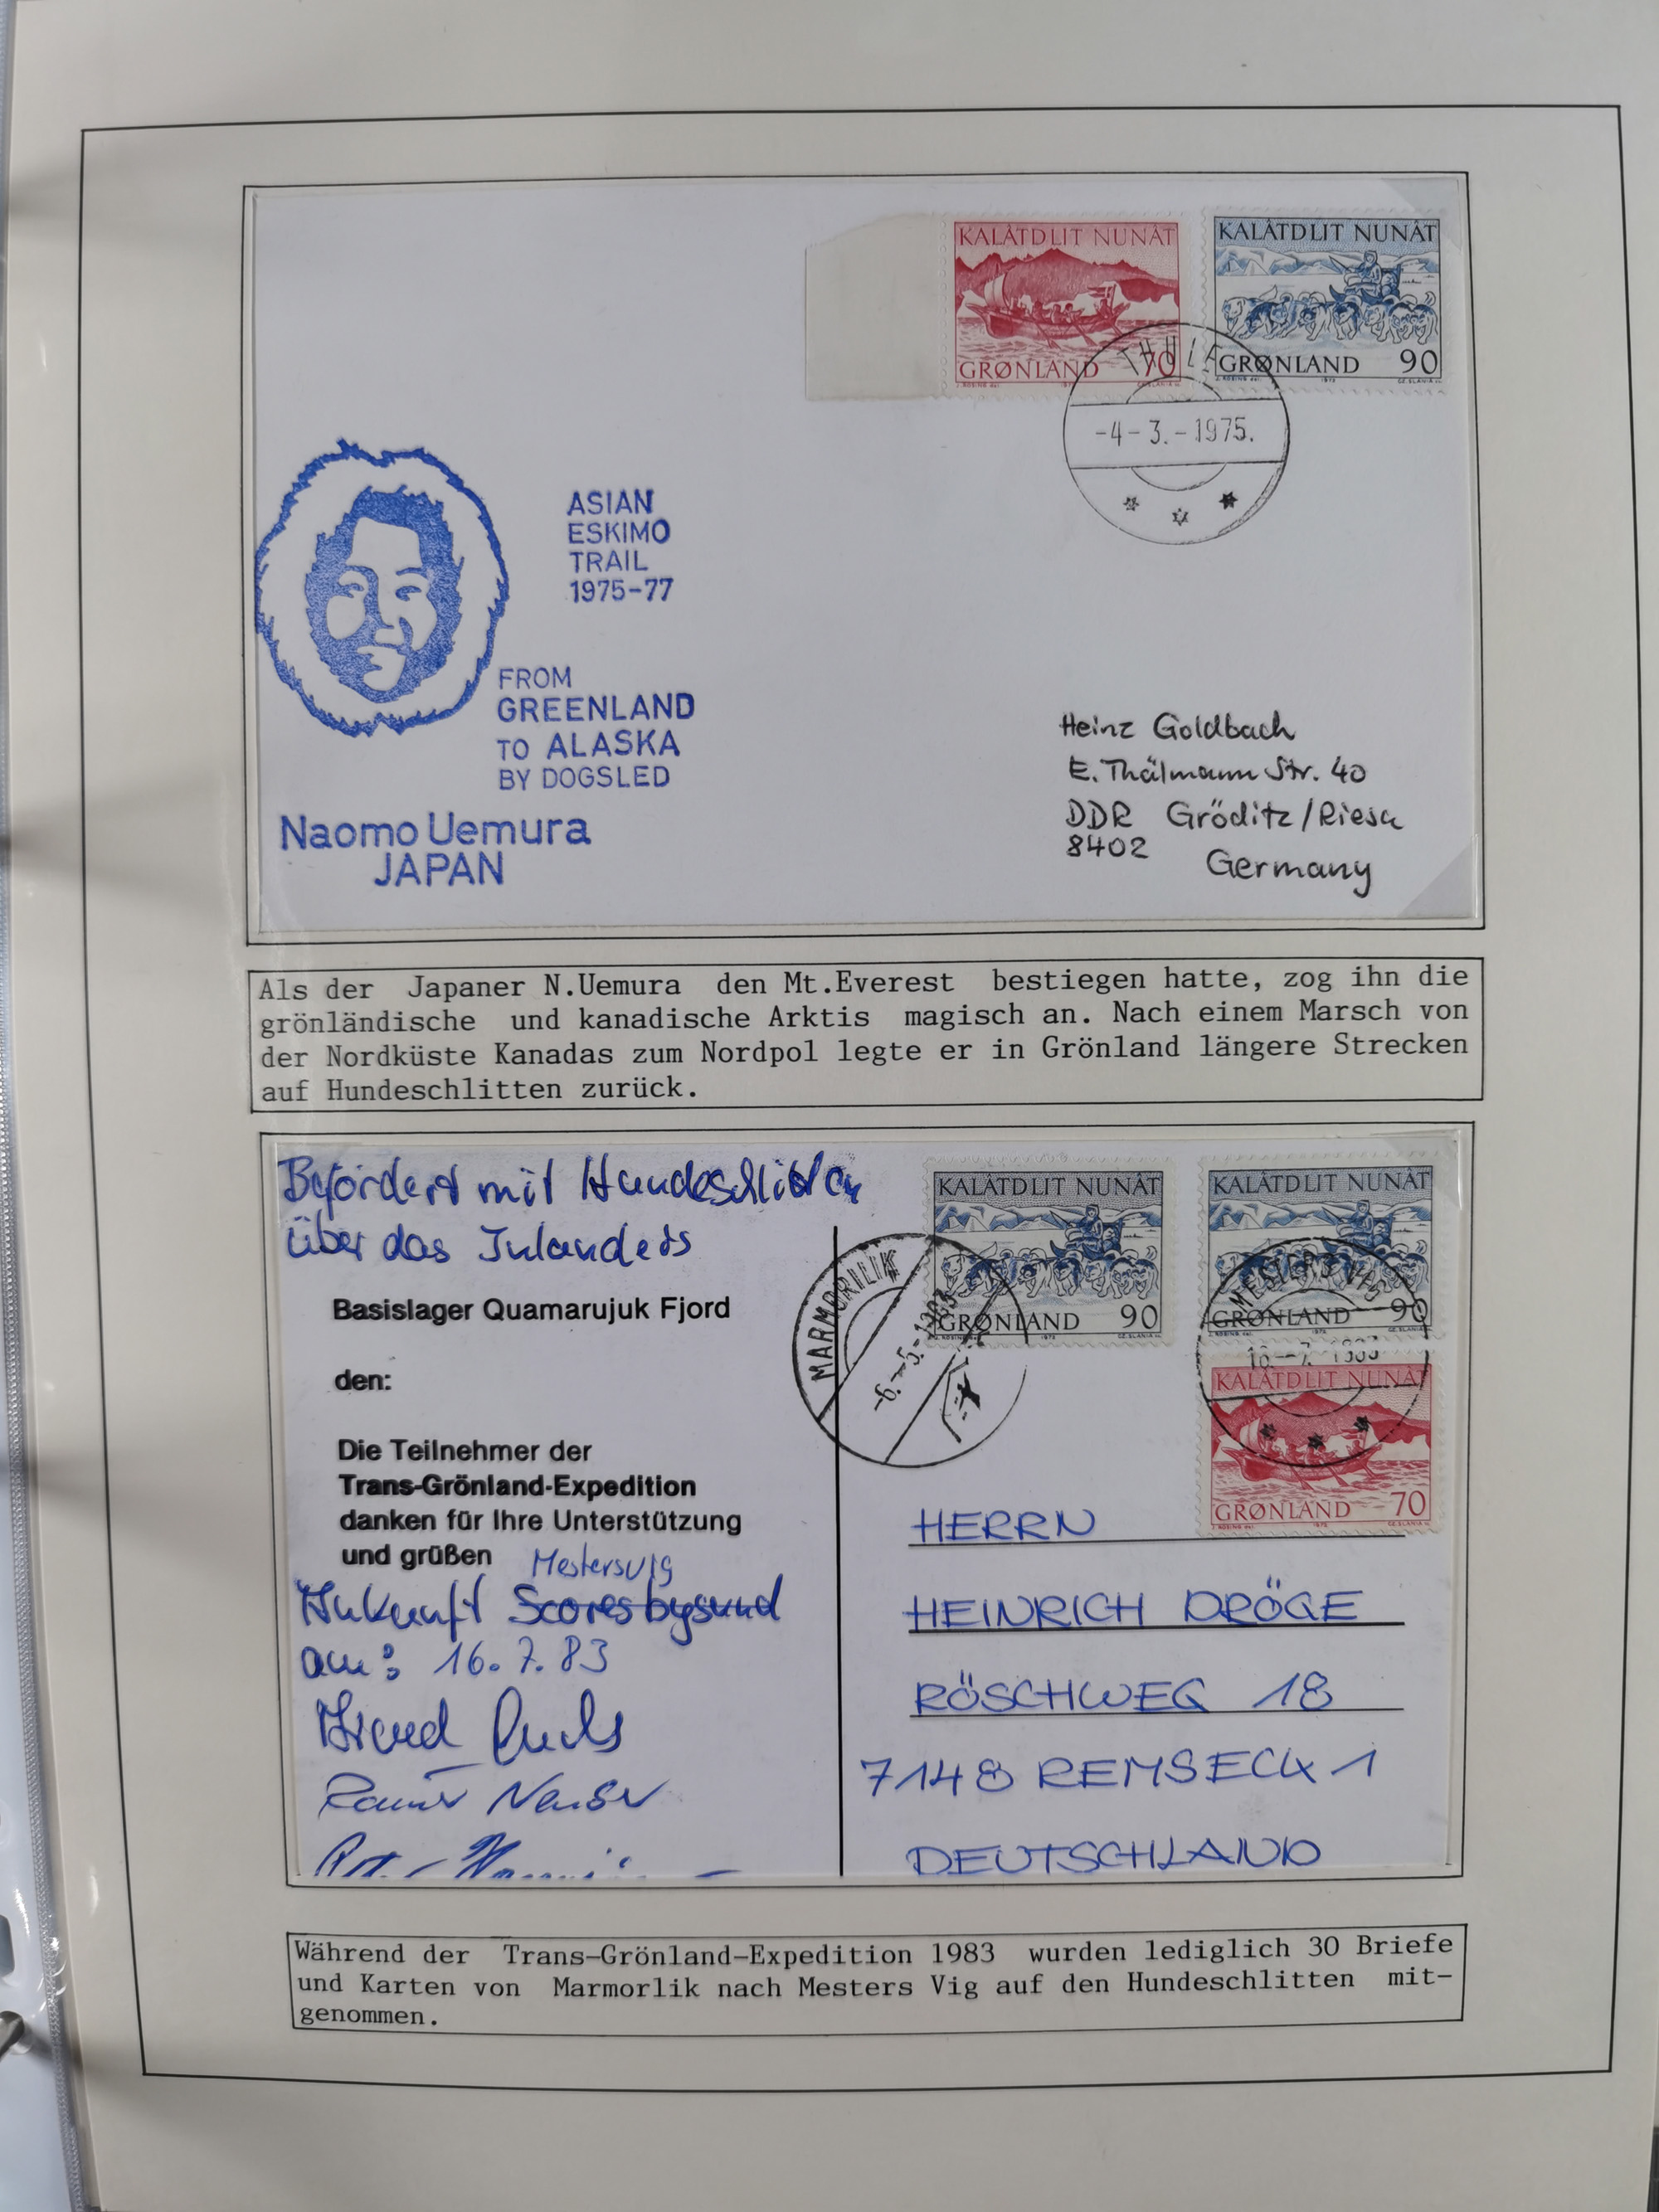 KALÂTDLIT NUNÂT
GRØNLAND 70
KALÂTDLIT NUNÂT
GRØNLAND 90
THULE
-4-3.-1975.
ASIAN
ESKIMO
TRAIL
1975-77
FROM
GREENLAND
TO ALASKA
BY DOGSLED
Naomo Uemura
JAPAN
Heinz Goldbach
E. Thälmann Str. 40
DDR Gröditz/Riesa
8402
Germany
Als der Japaner N.Uemura den Mt.Everest bestiegen hatte, zog ihn die
grönländische und kanadische Arktis magisch an. Nach einem Marsch von
der Nordküste Kanadas zum Nordpol legte er in Grönland längere Strecken
auf Hundeschlitten zurück.
Befördert mit Hundeschlitten
über das Inlandeis
Basislager Quamarujuk Fjord
den:
Die Teilnehmer der
Trans-Grönland-Expedition
danken für Ihre Unterstützung
und grüßen
Mestersvig
Ankunft Scoresbysund
am: 16.7.83
Arved Fuchs
Rainer
KALÂTDLIT NUNÂT
GRØNLAND 90
MARMORILIK
-6.-5.-1983
KALÂTDLIT NUNÂT
GRØNLAND 90
MESTERS VIG
16.-7.-1983
KALÂTDLIT NUNÂT
GRØNLAND 70
HERRN
HEINRICH DRÖGE
RÖSCHWEG 18
7148 REMSECK 1
DEUTSCHLAND
Während der Trans-Grönland-Expedition 1983 wurden lediglich 30 Briefe
und Karten von Marmorlik nach Mesters Vig auf den Hundeschlitten mit-
genommen.